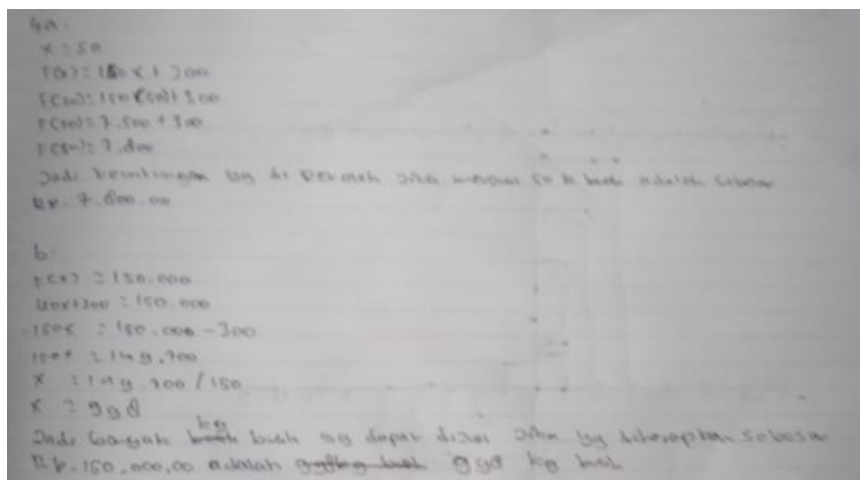 4a.
x = 50
F(x) = 150x + 300
F(50) = 150(50) + 300
F(50) = 7.500 + 300
F(50) = 7.800
Jadi keuntungan yg di peroleh jika menjual 50 k buah adalah sebesar
Rp. 7.800.00
b.
F(x) = 150.000
150x + 300 = 150.000
150x = 150.000 - 300
150x = 149.700
x = 149.700 / 150
x = 998
Jadi banyak kg buah yg dapat dijual jika yg diharapkan sebesar
Rp. 150.000,00 adalah 998 kg buah